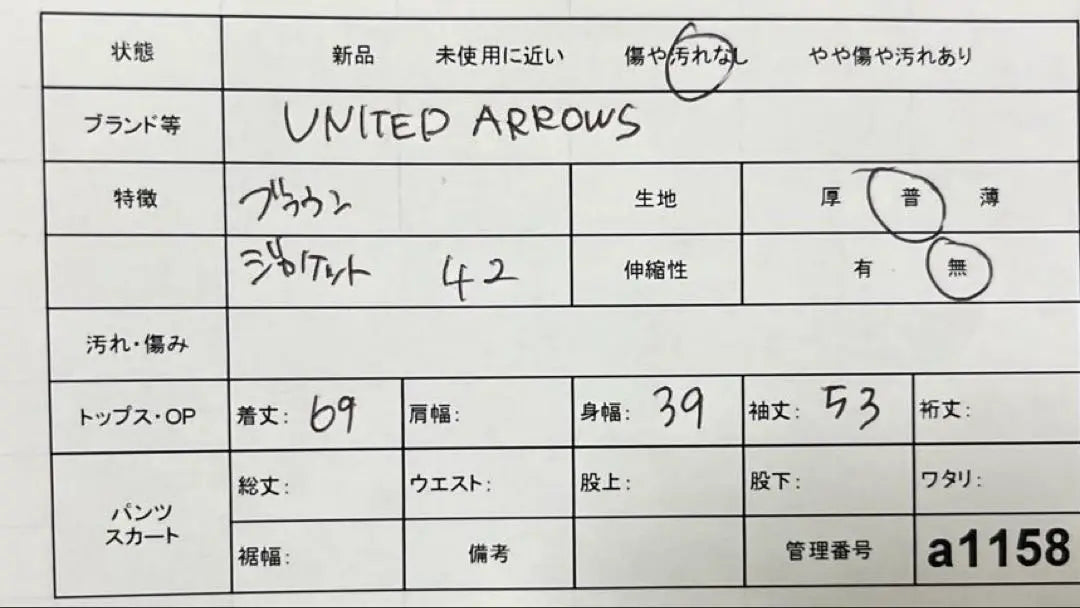 状態 新品 未使用に近い 傷や汚れなし やや傷や汚れあり
ブランド等 UNITED ARROWS
特徴 ブラウン 生地 厚 普 薄
ジャケット 42 伸縮性 有 無
汚れ・傷み
トップス・OP 着丈: 69 肩幅: 身幅: 39 袖丈: 53 裄丈:
パンツ
スカート
総丈: ウエスト: 股上: 股下: ワタリ:
裾幅: 備考 管理番号 a1158